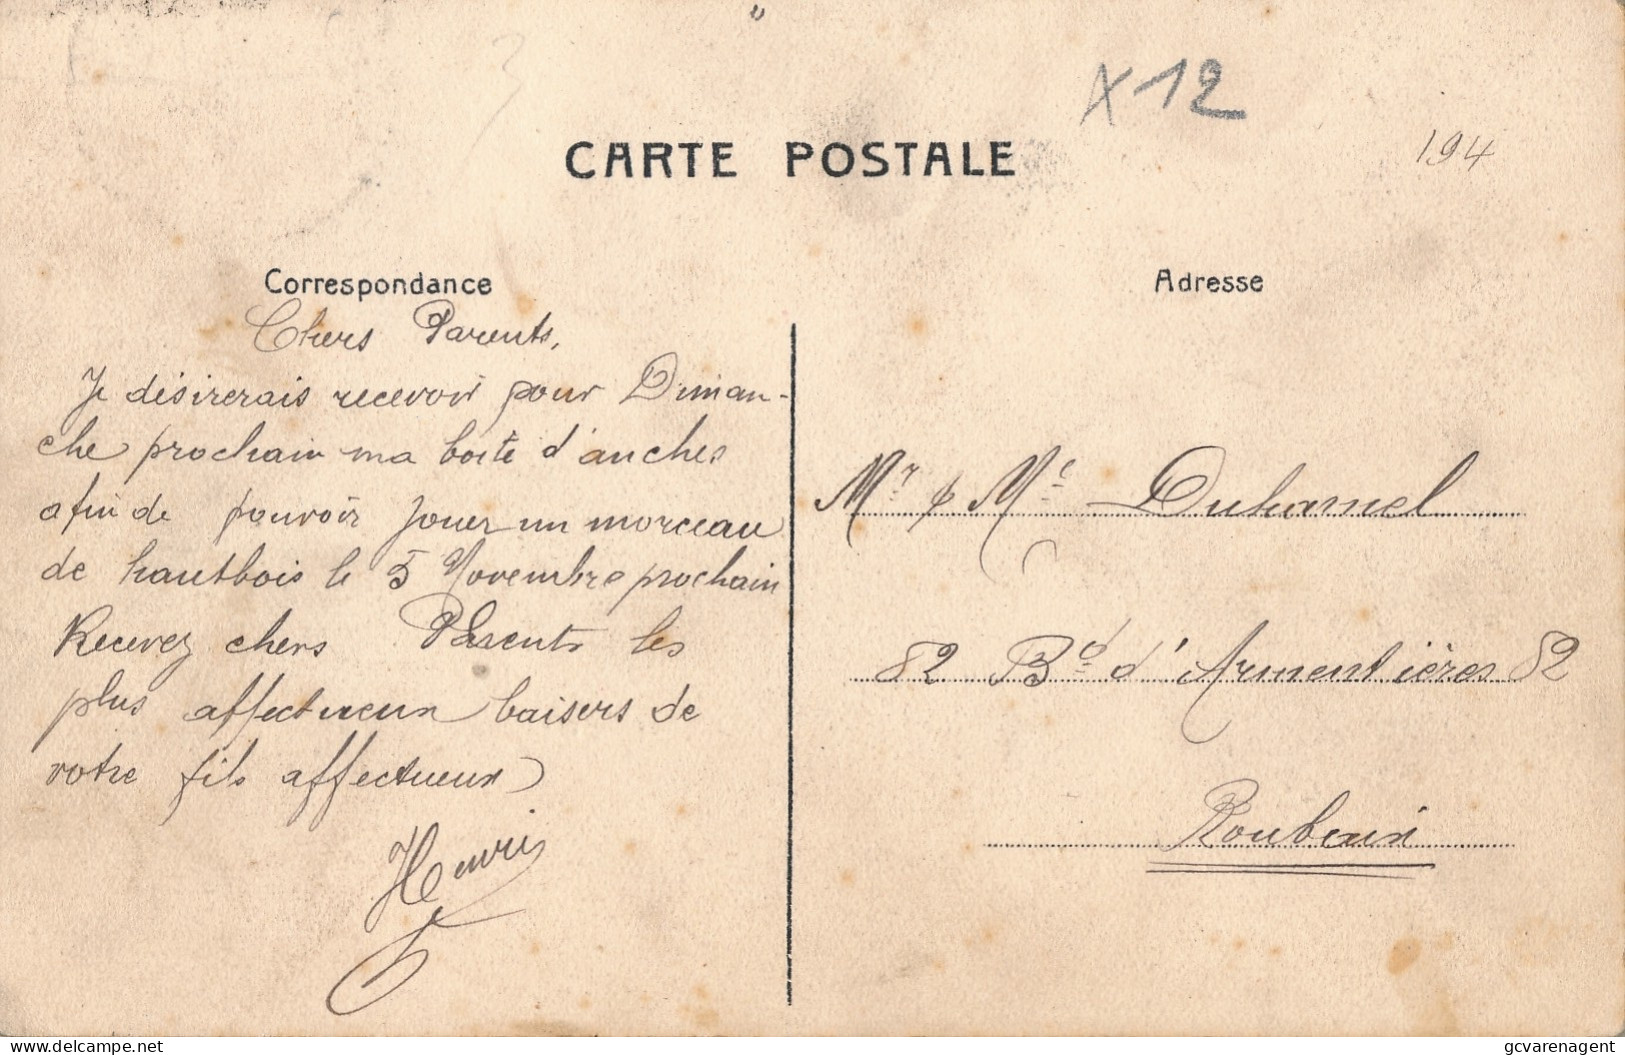 X 12
194
CARTE POSTALE
Correspondance
Chers Parents,
Je désirerais recevoir pour Diman-
che prochain ma boite d'anches
afin de pouvoir jouer un morceau
de hautbois le 5 Novembre prochain
Recevez chers Parents les
plus affectueux baisers de
votre fils affectueux
Henri
Adresse
Mr & Me Duhamel
82 Bd d'Armentières 82
Roubaix
delcampe.net
gcvarenagent